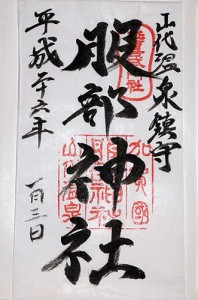 山代温泉鎮守
服部神社
平成二十六年
一月三日
山代温泉